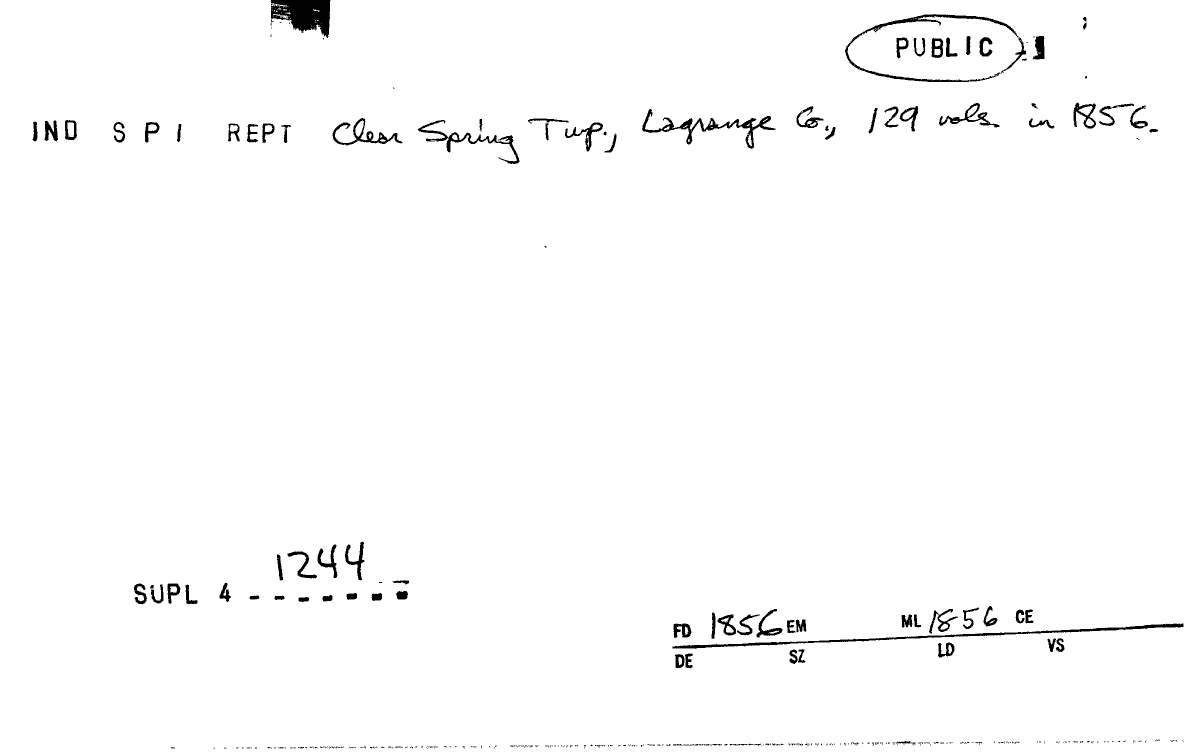 PUBLIC
IND S P I REPT Clear Spring Twp., Lagrange Co., 129 vols. in 1856.
1244
SUPL 4 - - - - - - -
FD 1856 EM ML 1856 CE
DE SZ LD VS